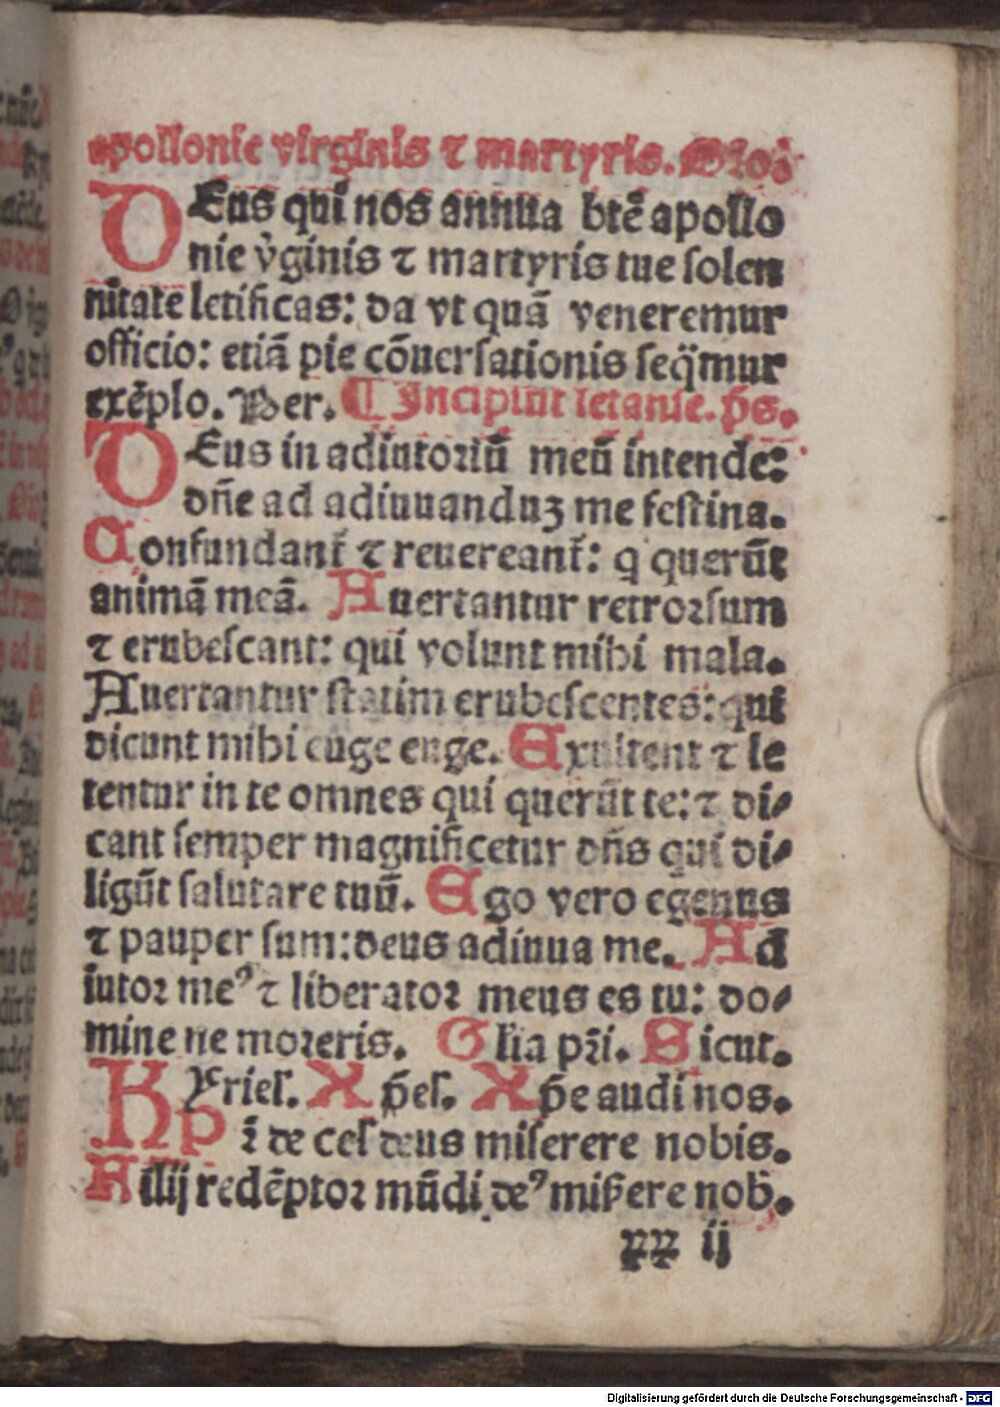 apollonie virginis ⁊ martyris. Oro.
DEus qui nos annua btē apollo
nie v̾ginis ⁊ martyris tue solen
nitate letificas: da vt quā veneremur
officio: etiā pie cōuersationis seq̄mur
exēplo. Per. ¶ Incipiūt letanie. p̄s.
DEus in adiutoriū meū intende:
dn̄e ad adiuuanduꝫ me festina.
Confundant᷑ ⁊ reuereant᷑: q querūt
animā meā. Auertantur retrorsum
⁊ erubescant: qui volunt mihi mala.
Auertantur statim erubescentes: qui
dicunt mihi euge euge. Exultent ⁊ le
tentur in te omnes qui querūt te: ⁊ di⸗
cant semper magnificetur dn̄s qui di⸗
ligūt salutare tuū. Ego vero egenus
⁊ pauper sum: deus adiuua me. Ad
iutor meꝰ ⁊ liberator meus es tu: do⸗
mine ne moreris. Gl̄ia pr̄i. Sicut.
Kyriel. Xp̄el. Xp̄e audi nos.
Pr̄ de cel deus miserere nobis.
Filij redēptor mūdi deꝰ misere nob̄.
xx ij
Digitalisierung gefördert durch die Deutsche Forschungsgemeinschaft - DFG